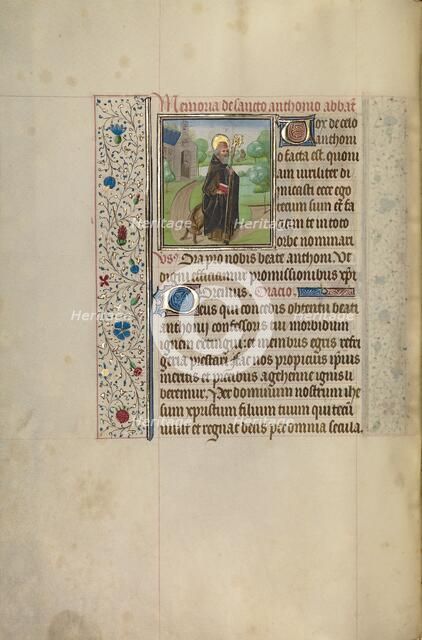 Memoria de sancto anthonio abbat
Vox de celo
anthoni
o facta est. quoni
am viriliter di
micasti ecce ego
tecum sum et fa
ciam te in toto
orbe nominari
Vs. Ora pro nobis beate anthoni. Vt
digni efficiamur promissionibus xpi
Oremus. Oracio.
Deus qui concedis obtentu beati
anthonij confessoris tui morbidum
ignem extingui: et membris egris refri
geria prestari fac nos propicius ipsius
meritis et precibus a gehenne ignis li
beremur. Per dominum nostrum ihe
sum xpristum filium tuum qui tecum
viuit et regnat deus per omnia secula.
Heritage
Heritage
Heritage
Heritage
Heritage
Heritage
Heritage